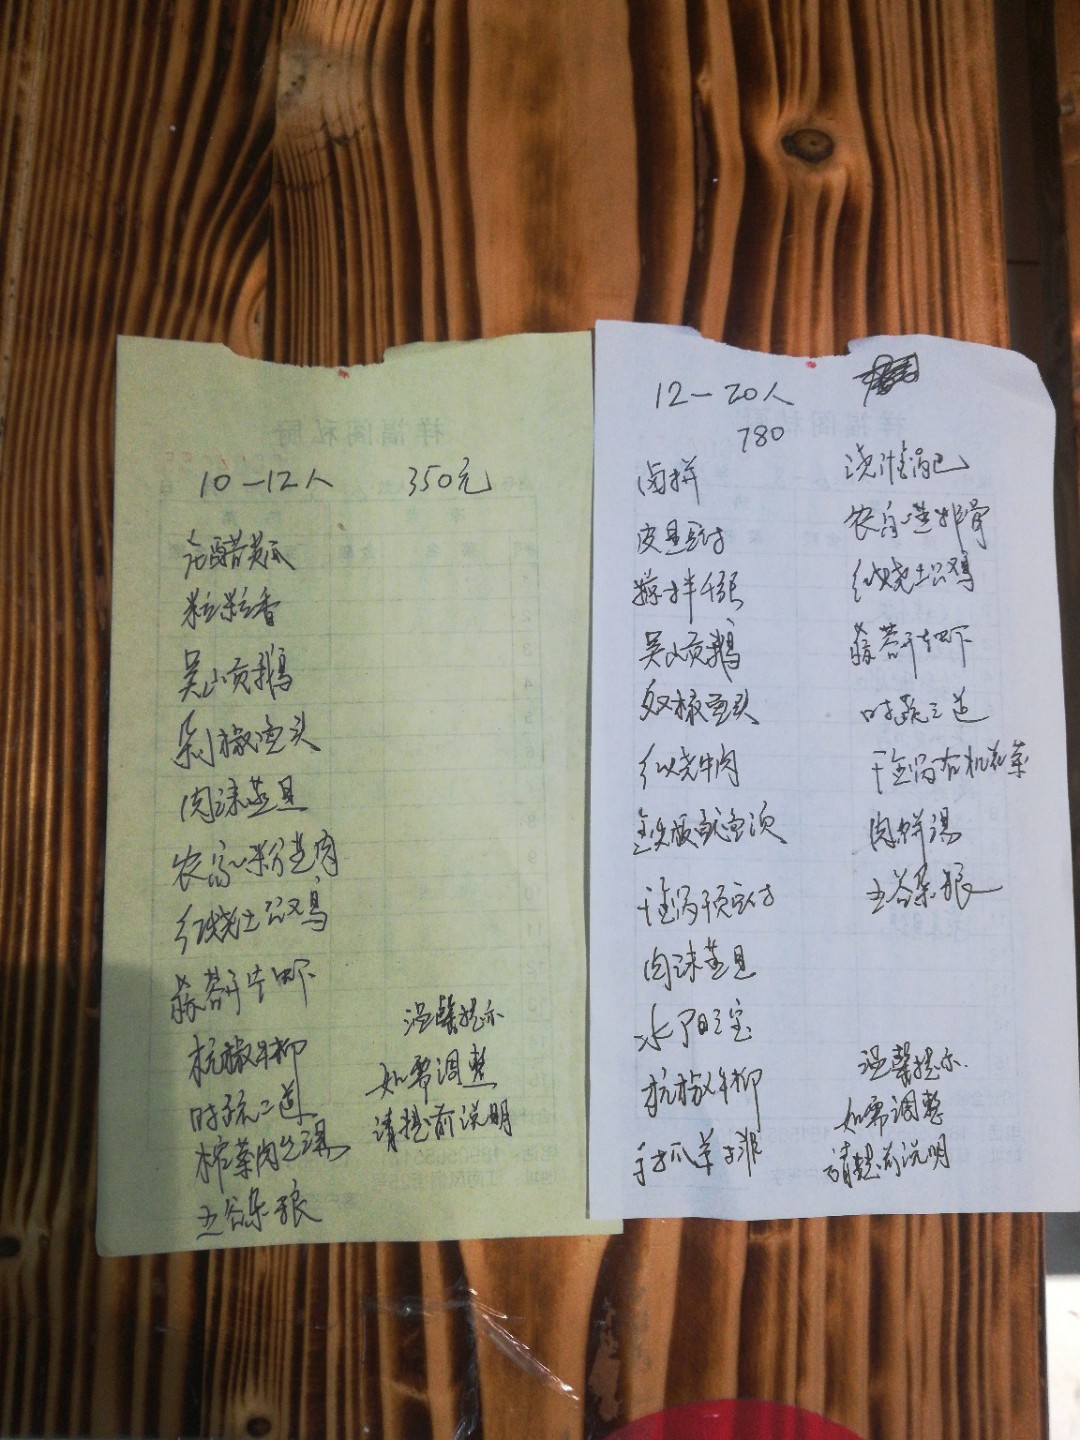 10-12人 350元
老醋黄瓜
粒粒香
吴山贡鹅
剁椒鱼头
肉沫蒸旦
农家粉蒸肉
红烧土公鸡
蒜蓉开片虾
杭椒牛柳
时疏二道
榨菜肉丝汤
五谷杂粮
温馨提示
如需调整
请提前说明
12-20人
780
卤拼
皮旦豆付
凉拌千张
吴山贡鹅
双椒鱼头
红烧牛肉
铁板鱿鱼须
干锅千页豆付
肉沫蒸旦
水阳三宝
杭椒牛柳
手抓羊排
浇汁锅巴
农家蒸排骨
红烧土公鸡
蒜蓉开片虾
时蔬三道
干锅有机花菜
肉鲜汤
五谷杂粮
温馨提示
如需调整
请提前说明